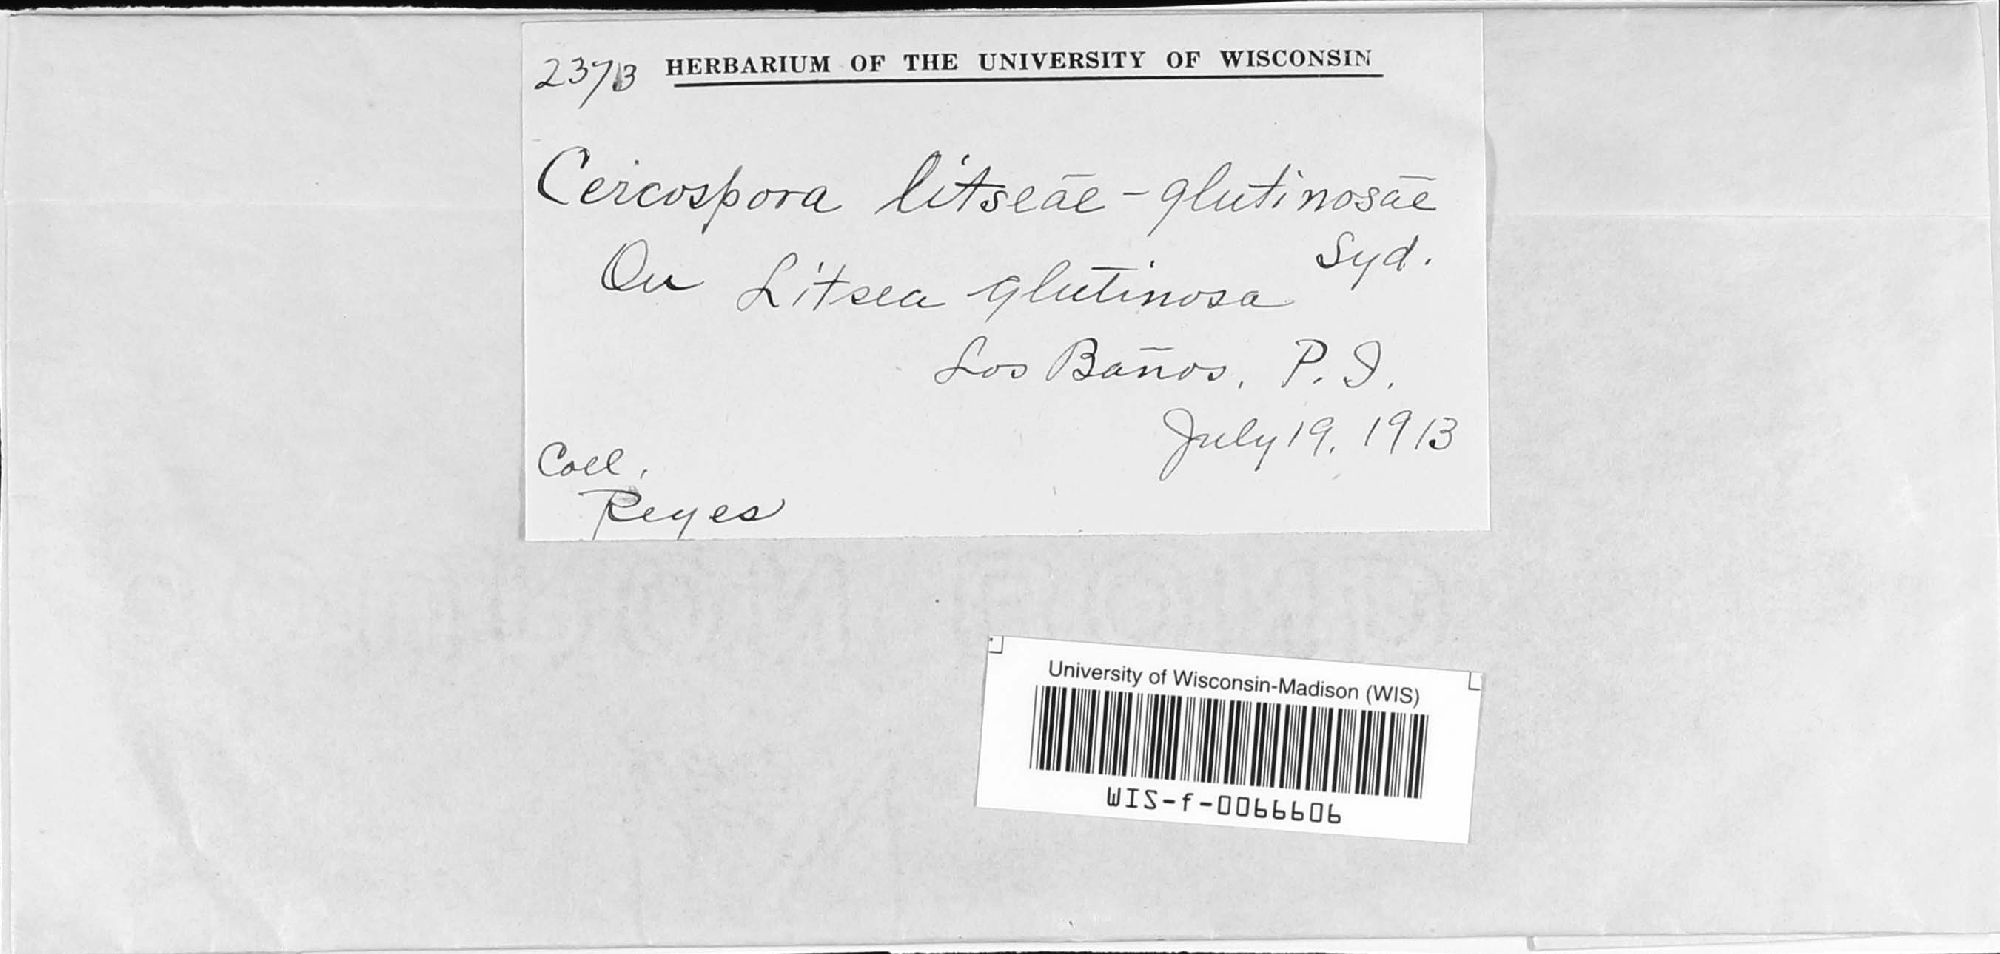 2373 HERBARIUM OF THE UNIVERSITY OF WISCONSIN
Cercospora litseae-glutinosae
Syd.
On Litsea glutinosa
Los Baños, P. I.
July 19, 1913
Coll.
Reyes
University of Wisconsin-Madison (WIS)
WIS-f-0066606